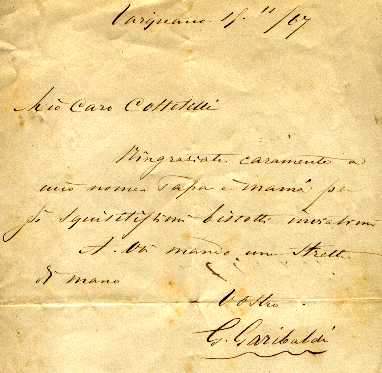 Varignano 15. 11/67
Mio Caro Coltelletti
Ringraziate caramente a
mio nome Papa e mamá pe
gli squisitissimi biscotti inviatimi
A Voi mando una stretta
di mano
Vostro
G. Garibaldi